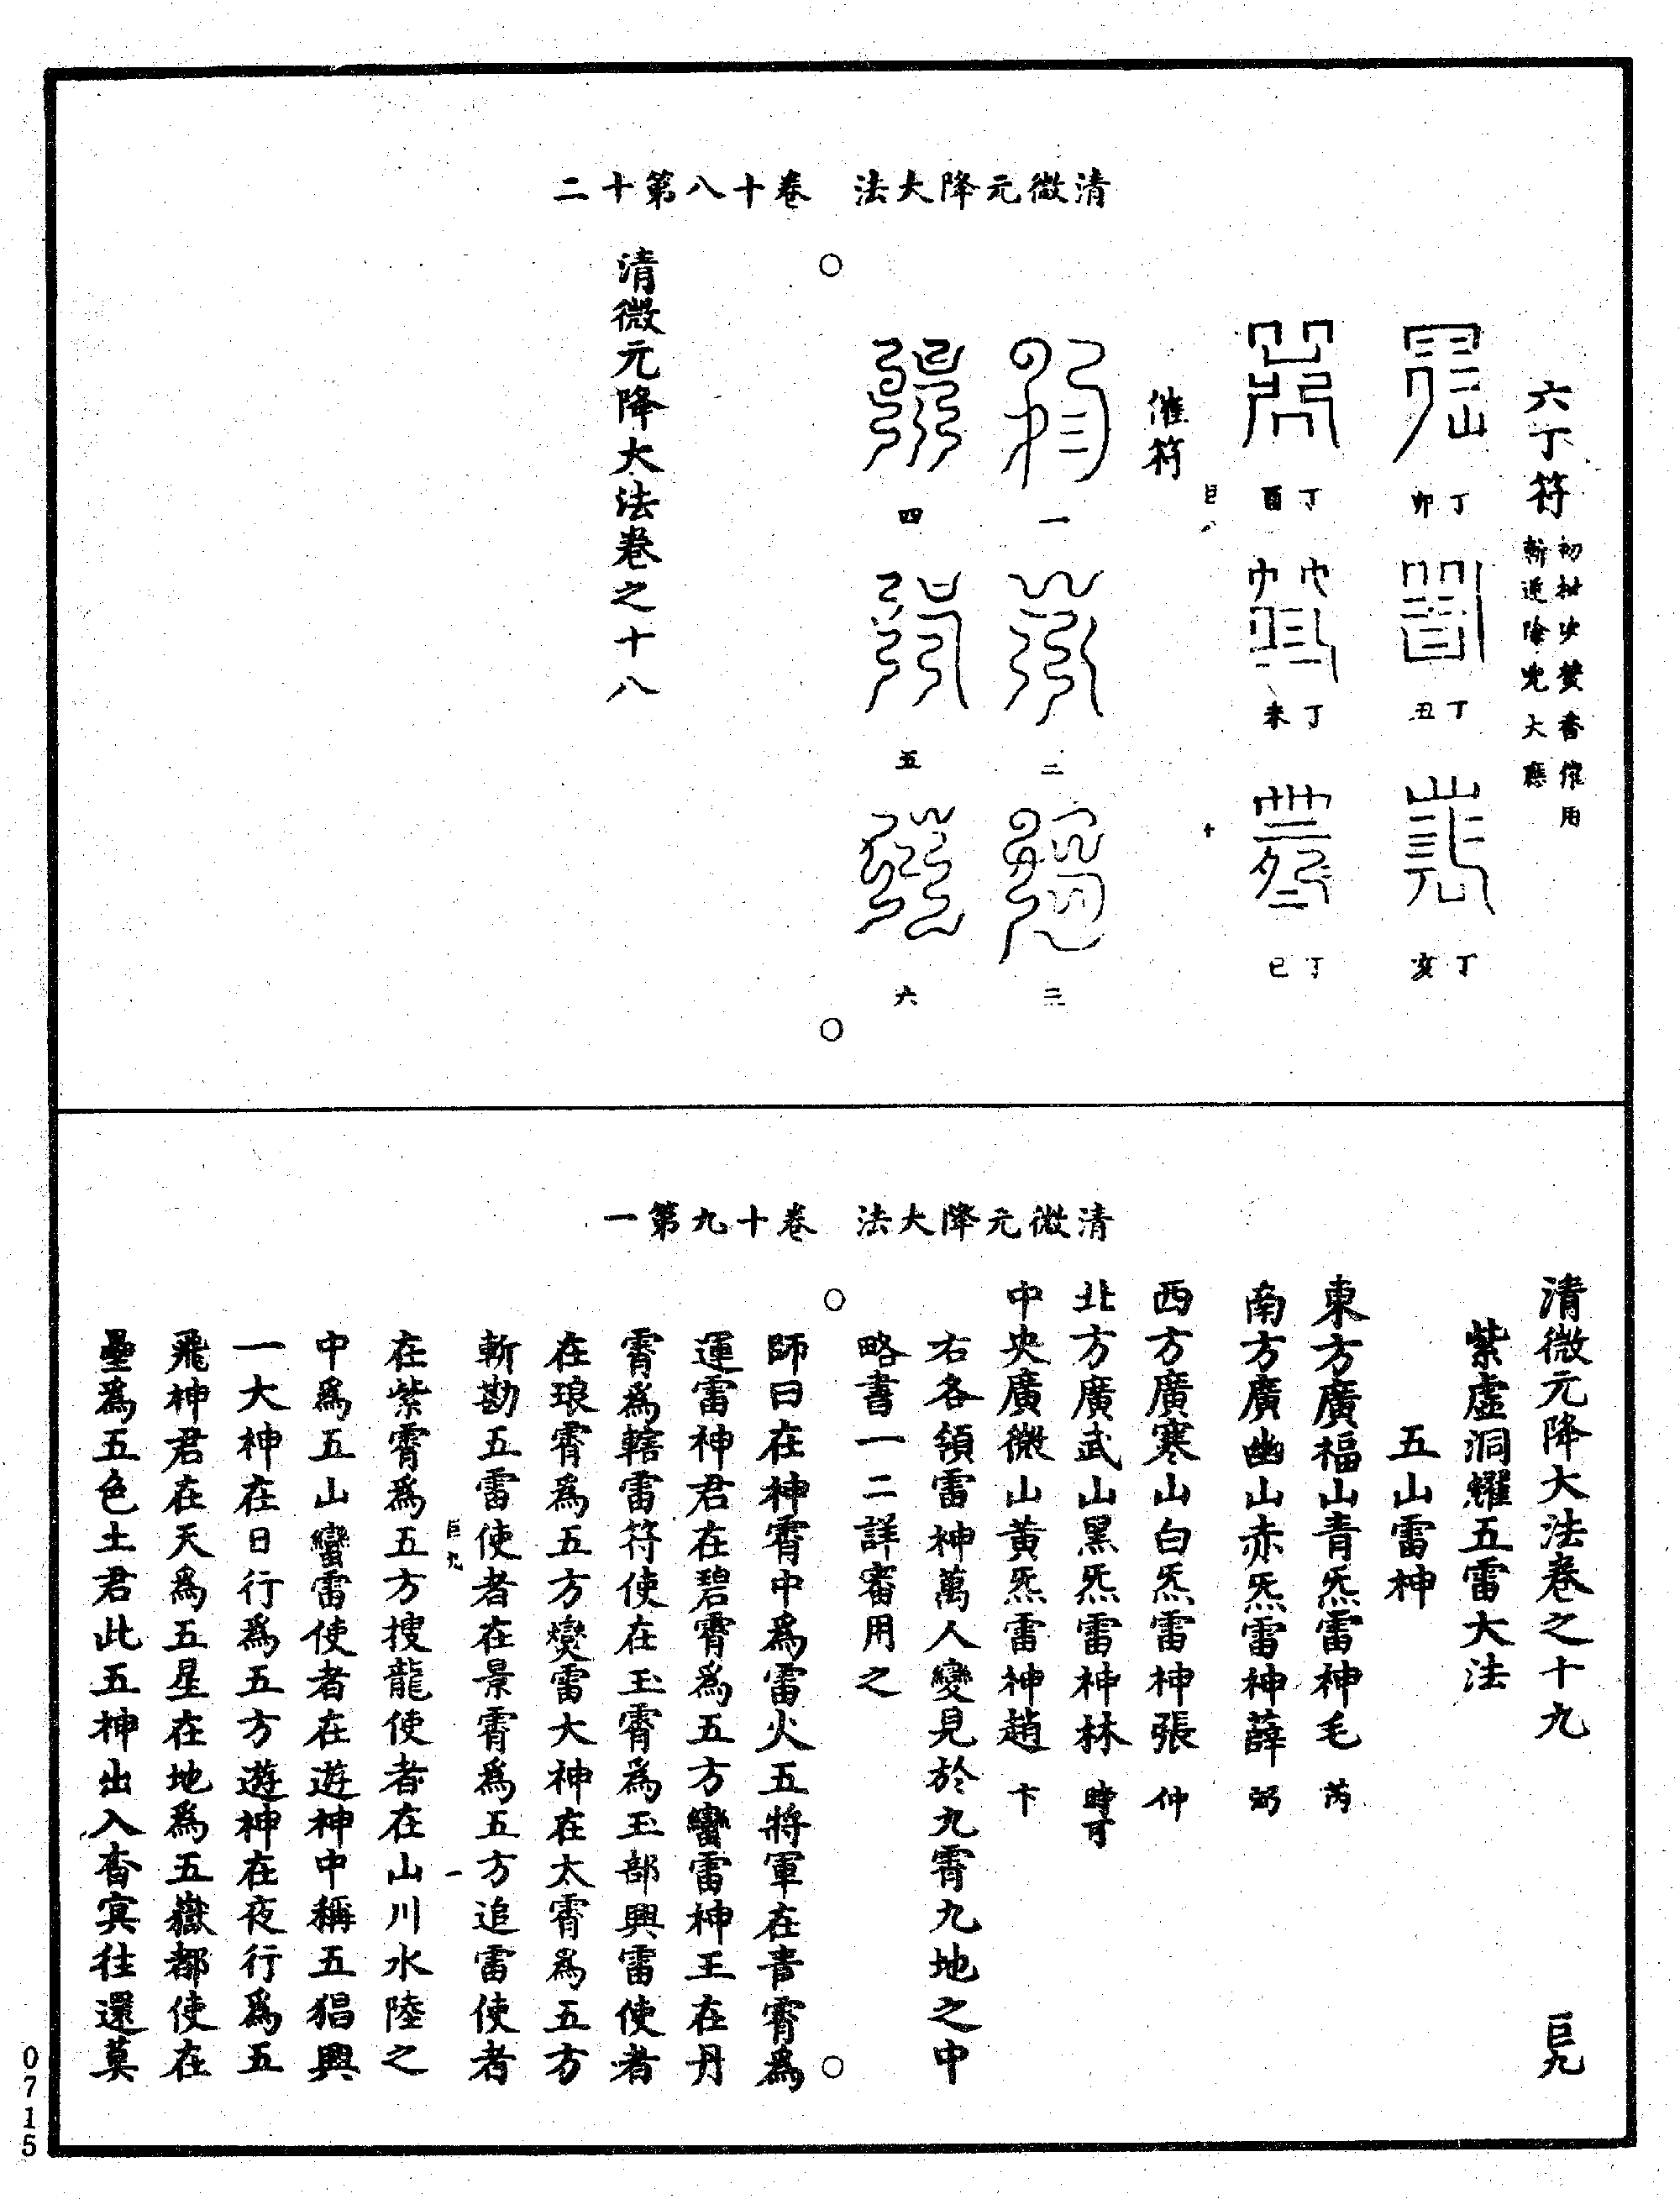 清微元降大法　卷十八第十二
六丁符
初
斬
丁卯
丁丑
丁亥
丁酉
丁未
丁巳
巨八
十
催符
一
二
三
四
五
六
清微元降大法卷之十八
清微元降大法　卷十九第一
清微元降大法卷之十九　巨九
紫虛洞耀五雷大法
五山雷神
東方廣福山青炁雷神毛芮
南方廣幽山赤炁雷神薛弼
西方廣寒山白炁雷神張仲
北方廣武山黑炁雷神林時可
中央廣微山黃炁雷神趙卞
右各領雷神萬人變見於九霄九地之中
略書一二詳審用之
師曰在神霄中爲雷火五將軍在青霄爲
運雷神君在碧霄爲五方蠻雷神王在丹
霄爲轄雷符使在玉霄爲玉部興雷使者
在琅霄爲五方爕雷大神在太霄爲五方
斬勘五雷使者在景霄爲五方追雷使者
巨九
一
在紫霄爲五方搜龍使者在山川水陸之
中爲五山蠻雷使者在遊神中稱五猖興
一大神在日行爲五方遊神在夜行爲五
飛神君在天爲五星在地爲五嶽都使在
壘爲五色土君此五神出入杳冥往還莫
0715